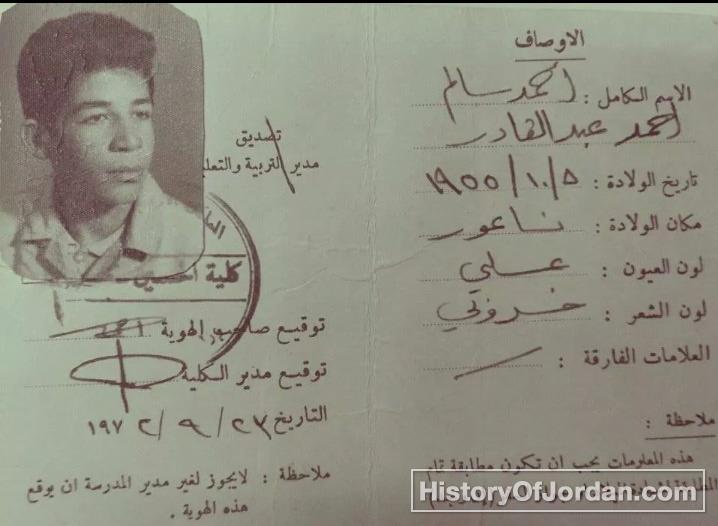 الاوصاف
الاسم الكامل : احمد سالم
احمد عبد القادر
تاريخ الولادة : ١٩٥٥/١٠/٥
مكان الولادة : ناعور
لون العيون : عسلي
لون الشعر :
العلامات الفارقة : /
ملاحظة :
هذه المعلومات يجب ان تكون مطابقة تمام
تصديق
مدير التربية والتعليـ
كلية الحسين
توقيع صاحب الهوية احمد
توقيع مدير الكلية
التاريخ ٢٣ / ٩ / ١٩٧٢
ملاحظة : لايجوز لغير مدير المدرسة ان يوقع
هذه الهوية .
HistoryOfJordan.com